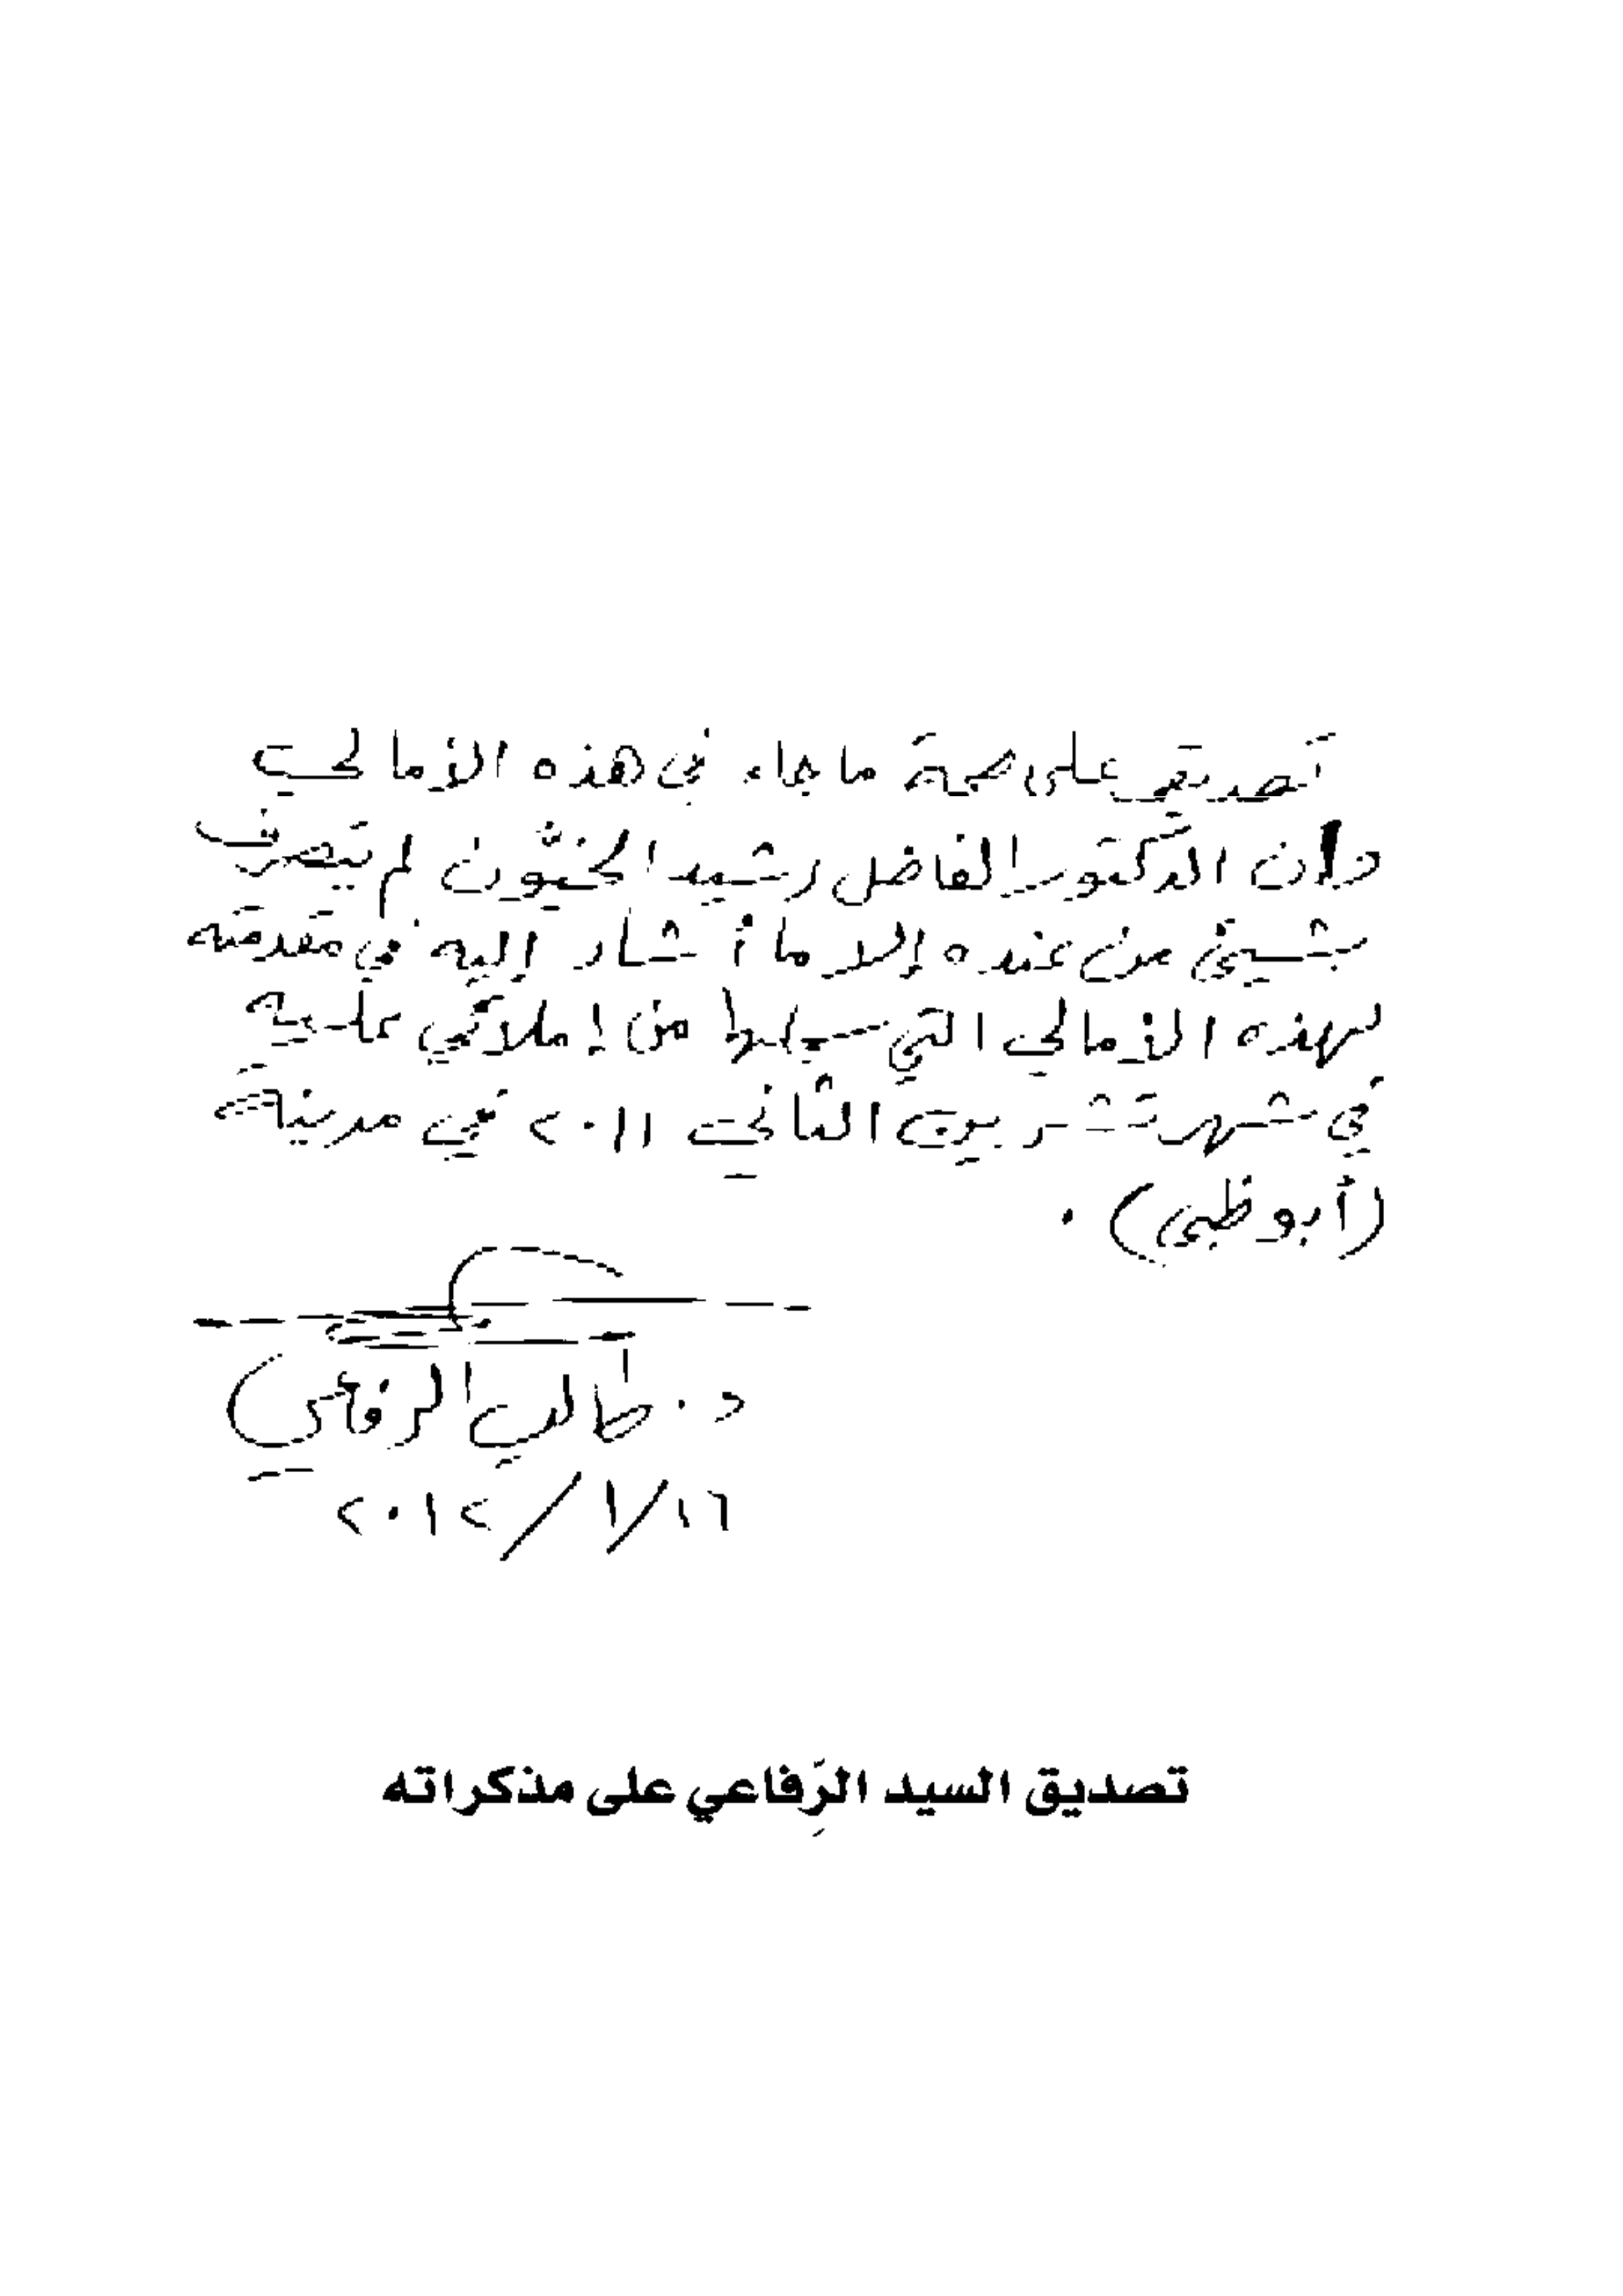 تصديقي على صحة ما جاء في هذه الأمالي
وأن الدكتور الفاضل رشيد الخيّون لم يتصرف
بشيئ من عنده إلا ما أشار إليه في مقدمته
لهذه الأمالي التي سجلها من إملائي عليه
في شهر تشرين الثاني ٢٠١١ في مدينة
(أبو ظبي) .
د . طالب الرفاعي
١٦/١/٢٠١٢
تصديق السيد الرِّفاعي على مذكراته